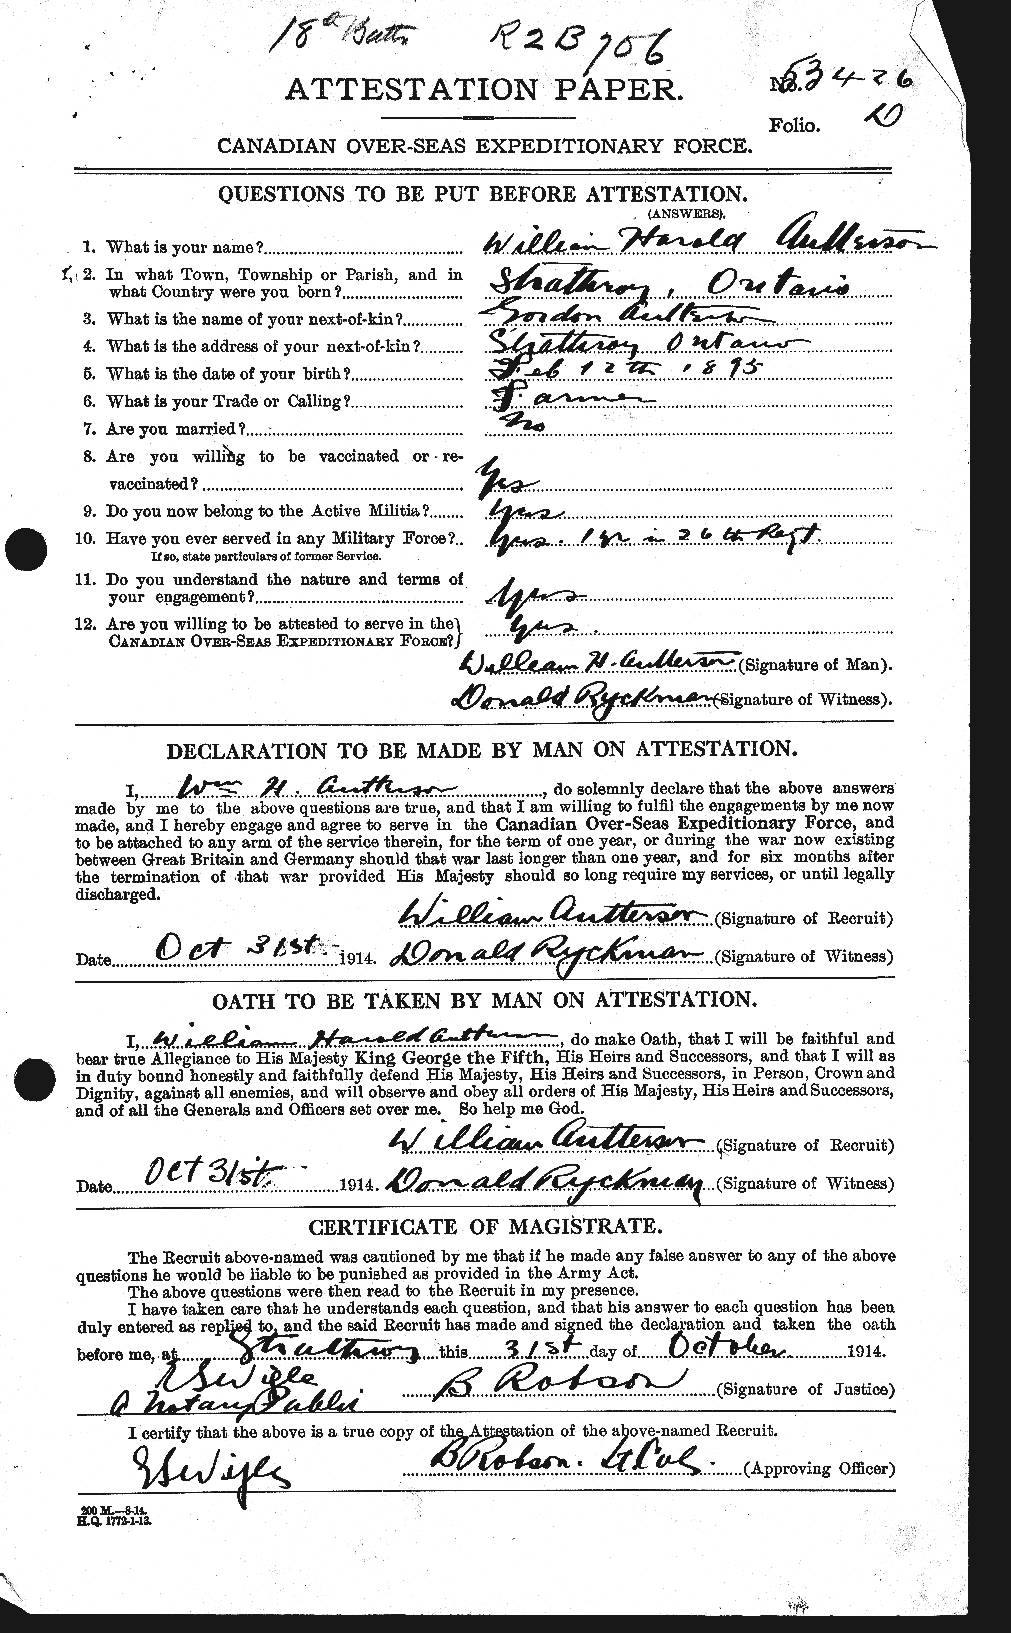 18th Battn R2B 706
ATTESTATION PAPER.
No. 53426
Folio. D
CANADIAN OVER-SEAS EXPEDITIONARY FORCE.
QUESTIONS TO BE PUT BEFORE ATTESTATION.
(ANSWERS).
1. What is your name? William Harold Autterson
2. In what Town, Township or Parish, and in
what Country were you born? Strathroy, Ontario
3. What is the name of your next-of-kin? Gordon Autterson
4. What is the address of your next-of-kin? Strathroy Ontario
5. What is the date of your birth? Feb 12th 1895
6. What is your Trade or Calling? Farmer
7. Are you married? No
8. Are you willing to be vaccinated or re-
vaccinated? Yes
9. Do you now belong to the Active Militia? Yes
10. Have you ever served in any Military Force? Yes. 1 yr in 26th Regt.
If so, state particulars of former Service.
11. Do you understand the nature and terms of
your engagement? Yes
12. Are you willing to be attested to serve in the
CANADIAN OVER-SEAS EXPEDITIONARY FORCE? Yes.
William H. Autterson (Signature of Man).
Donald Ryckman (Signature of Witness).
DECLARATION TO BE MADE BY MAN ON ATTESTATION.
I, Wm H. Autterson, do solemnly declare that the above answers
made by me to the above questions are true, and that I am willing to fulfil the engagements by me now
made, and I hereby engage and agree to serve in the Canadian Over-Seas Expeditionary Force, and
to be attached to any arm of the service therein, for the term of one year, or during the war now existing
between Great Britain and Germany should that war last longer than one year, and for six months after
the termination of that war provided His Majesty should so long require my services, or until legally
discharged.
William Autterson (Signature of Recruit)
Date Oct 31st 1914. Donald Ryckman (Signature of Witness)
OATH TO BE TAKEN BY MAN ON ATTESTATION.
I, William Harold Autterson, do make Oath, that I will be faithful and
bear true Allegiance to His Majesty King George the Fifth, His Heirs and Successors, and that I will as
in duty bound honestly and faithfully defend His Majesty, His Heirs and Successors, in Person, Crown and
Dignity, against all enemies, and will observe and obey all orders of His Majesty, His Heirs and Successors,
and of all the Generals and Officers set over me. So help me God.
William Autterson (Signature of Recruit)
Date Oct 31st 1914. Donald Ryckman (Signature of Witness)
CERTIFICATE OF MAGISTRATE.
The Recruit above-named was cautioned by me that if he made any false answer to any of the above
questions he would be liable to be punished as provided in the Army Act.
The above questions were then read to the Recruit in my presence.
I have taken care that he understands each question, and that his answer to each question has been
duly entered as replied to, and the said Recruit has made and signed the declaration and taken the oath
before me, at Strathroy this 31st day of October 1914.
E S Wigle B Robson (Signature of Justice)
A Notary Public
I certify that the above is a true copy of the Attestation of the above-named Recruit.
E S Wigle B Robson. Lt Col. (Approving Officer)
200 M.—8-14.
H.Q. 1772-1-13.